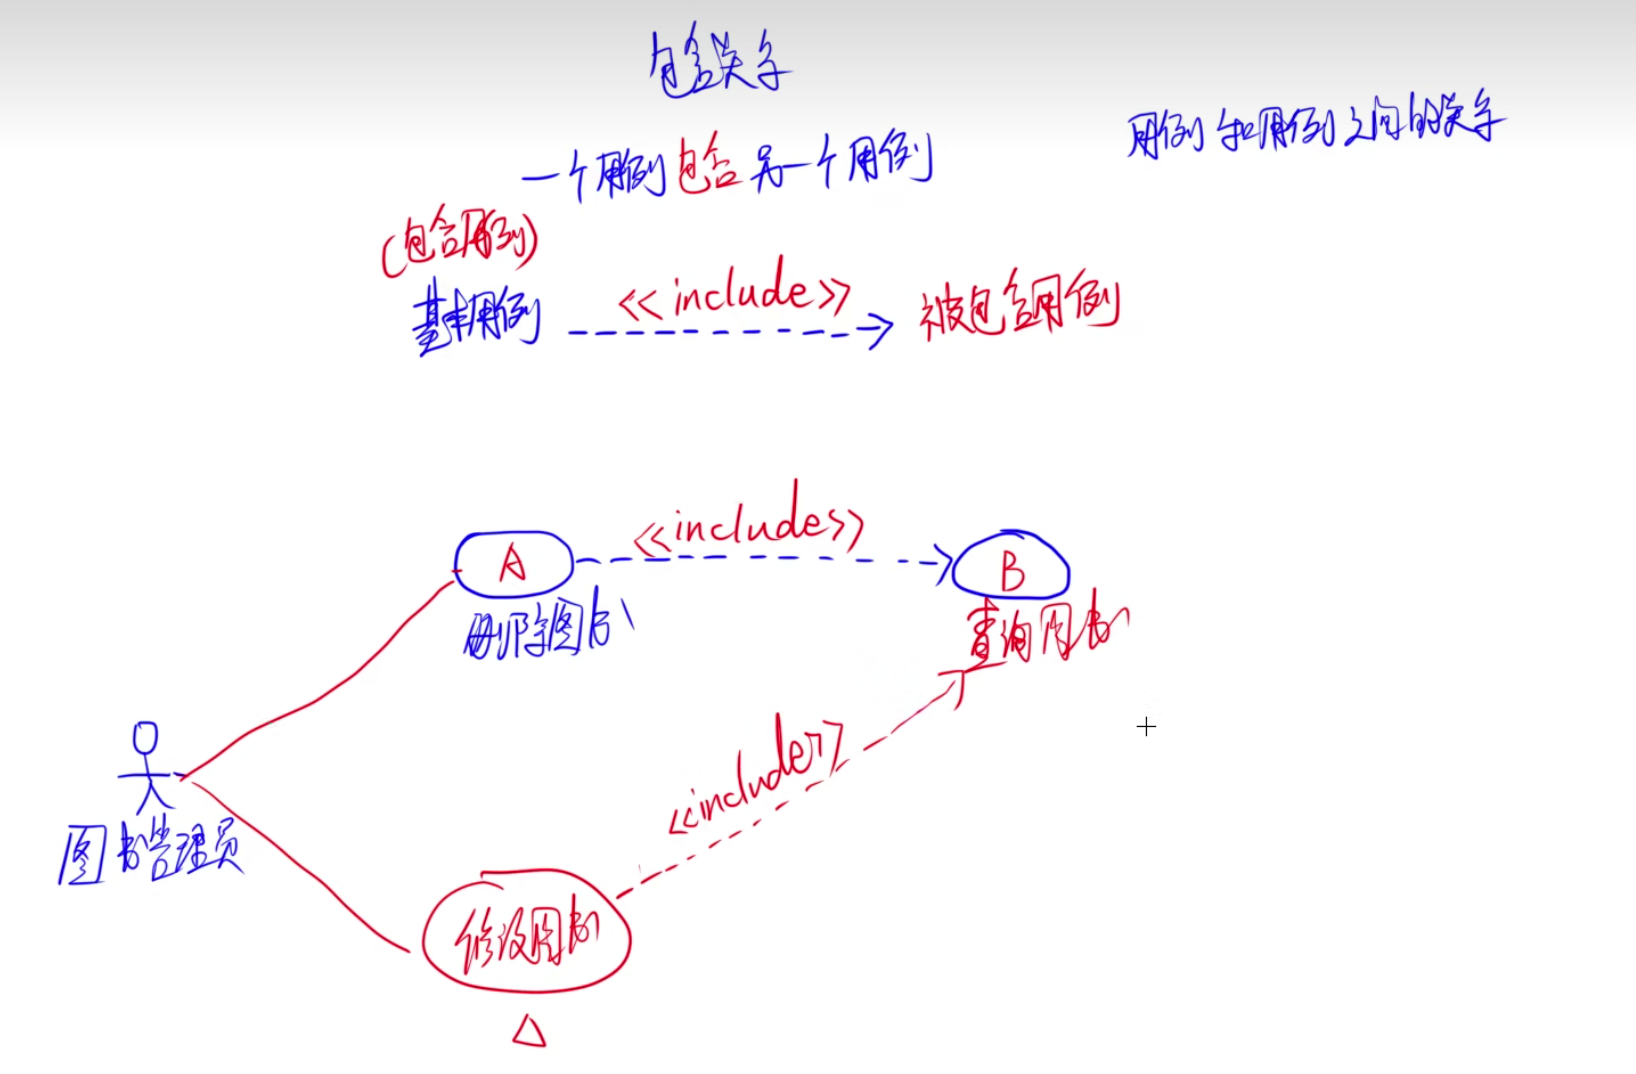 包含关系
用例和用例之间的关系
一个用例包含另一个用例
(包含用例)
基本用例 <<include>> 被包含用例
A <<includes>> B
删除图书 查询图书
<<includes>>
图书管理员
修改图书